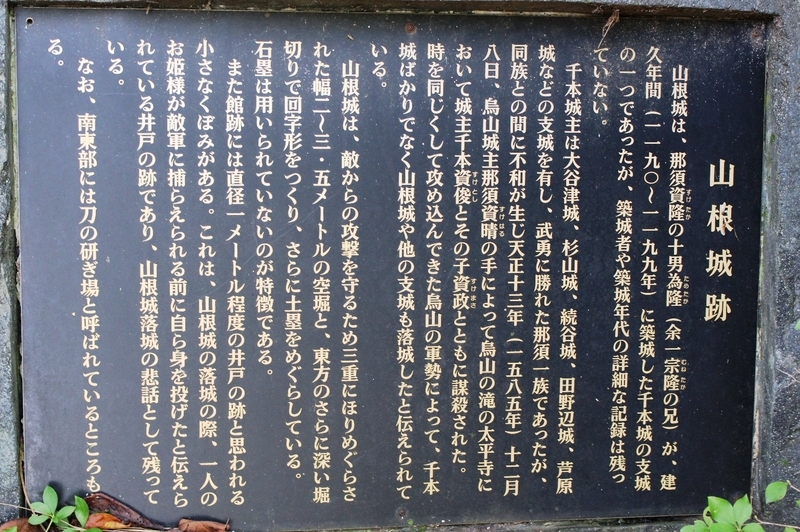 山根城跡
山根城は、那須資隆の十男為隆（余一宗隆の兄）が、建
久年間（一一九〇～一一九九年）に築城した千本城の支城
の一つであったが、築城者や築城年代の詳細な記録は残っ
ていない。
千本城主は大谷津城、杉山城、続谷城、田野辺城、芦原
城などの支城を有し、武勇に勝れた那須一族であったが、
同族との間に不和が生じ天正十三年（一五八五年）十二月
八日、烏山城主那須資晴の手によって烏山の滝の太平寺に
おいて城主千本資俊とその子資政とともに謀殺された。
時を同じくして攻め込んできた烏山の軍勢によって、千本
城ばかりでなく山根城や他の支城も落城したと伝えられて
いる。
山根城は、敵からの攻撃を守るため三重にほりめぐらさ
れた幅二～三・五メートルの空堀と、東方のさらに深い堀
切りで回字形をつくり、さらに土塁をめぐらしている。
石塁は用いられていないのが特徴である。
また館跡には直径一メートル程度の井戸の跡と思われる
小さなくぼみがある。これは、山根城の落城の際、一人の
お姫様が敵軍に捕らえられる前に自ら身を投げたと伝えら
れている井戸の跡であり、山根城落城の悲話として残って
いる。
なお、南東部には刀の研ぎ場と呼ばれているところもあ
る。